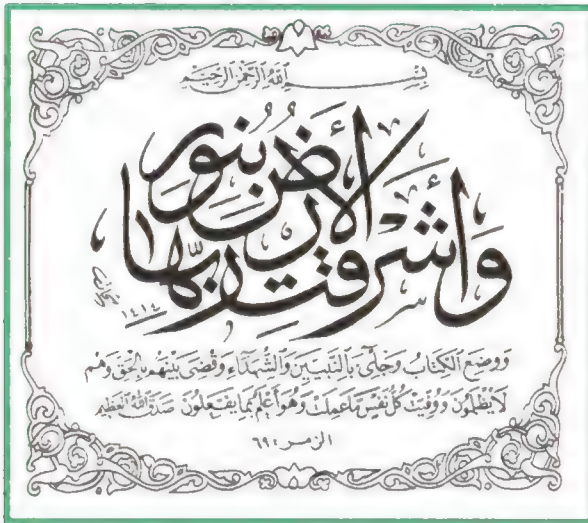 بسم الله الرحمن الرحيم
وأشرقت الأرض بنور ربها
١٤١٤
ووضع الكتاب وجاىء بالنبيين والشهداء وقضى بينهم بالحق وهم
لايظلمون ووفيت كل نفس ماعملت وهو أعلم بما يفعلون صدق الله العظيم
الزمر : ٦٩